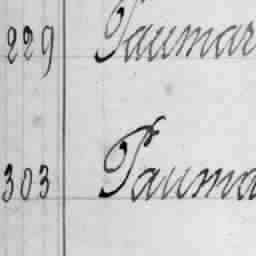 229 Paumar
303 Pauma